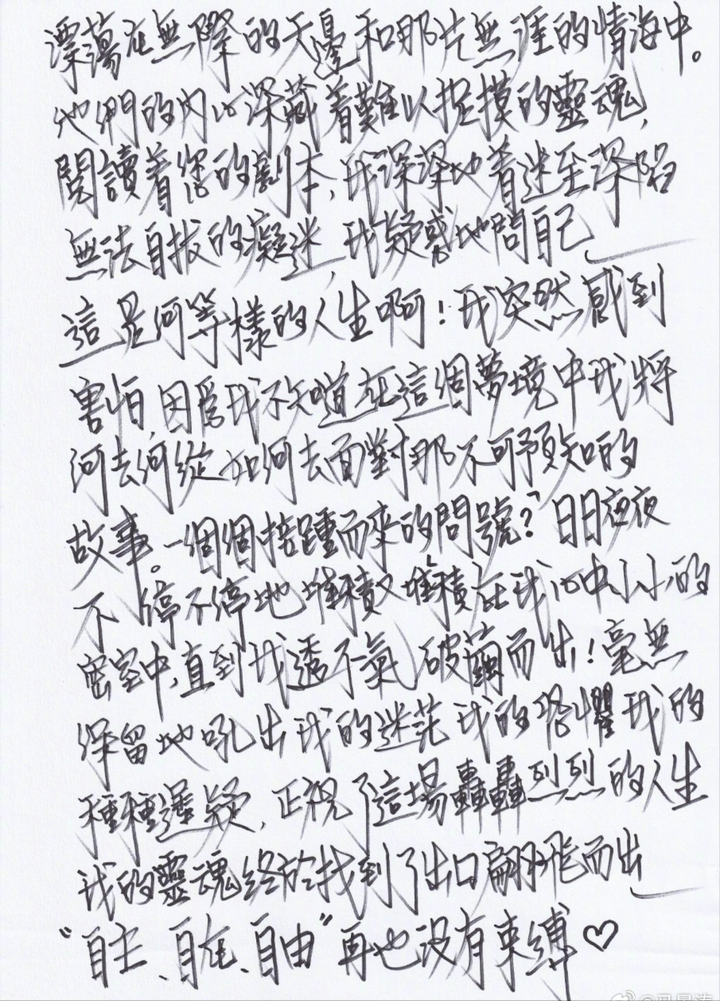 漂蕩在無際的天邊和那片無涯的情海中。
他們的內心深藏着難以捉摸的靈魂,
閱讀着您的劇本,我深深地着迷至深陷
無法自拔的癡迷,我疑惑地問自己
這是何等樣的人生啊!我突然感到
害怕,因為我不知道在這個夢境中我將
何去何從如何去面對那不可預知的
故事。一個個接踵而來的問號?日日夜夜
不停不停地堆積又堆積在我心中小小的
密室中,直到我透不氣破繭而出!毫無
保留地吼出我的迷茫我的恐懼我的
種種遲疑,正視了這場轟轟烈烈的人生
我的靈魂終於找到了出口翩飛而出
"自主、自在、自由"再也沒有束縛♡